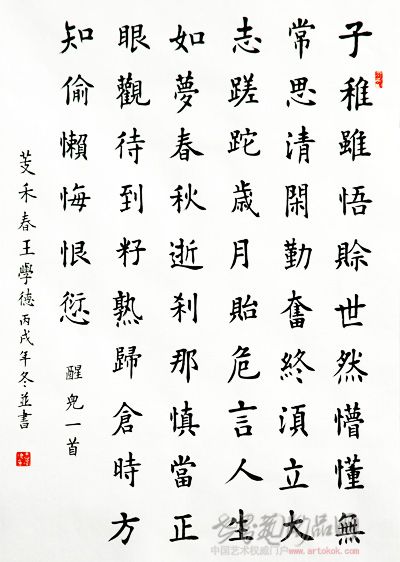 子稚雖悟賒世然懵懂無
常思清閑勤奮終須立大
志蹉跎歲月貽危言人生
如夢春秋逝剎那慎當正
眼觀待到籽熟歸倉時方
知偷懶悔恨愆
醒兒一首
禾春王學德丙戌年冬並書
中国艺术权威门户 www.artokok.com